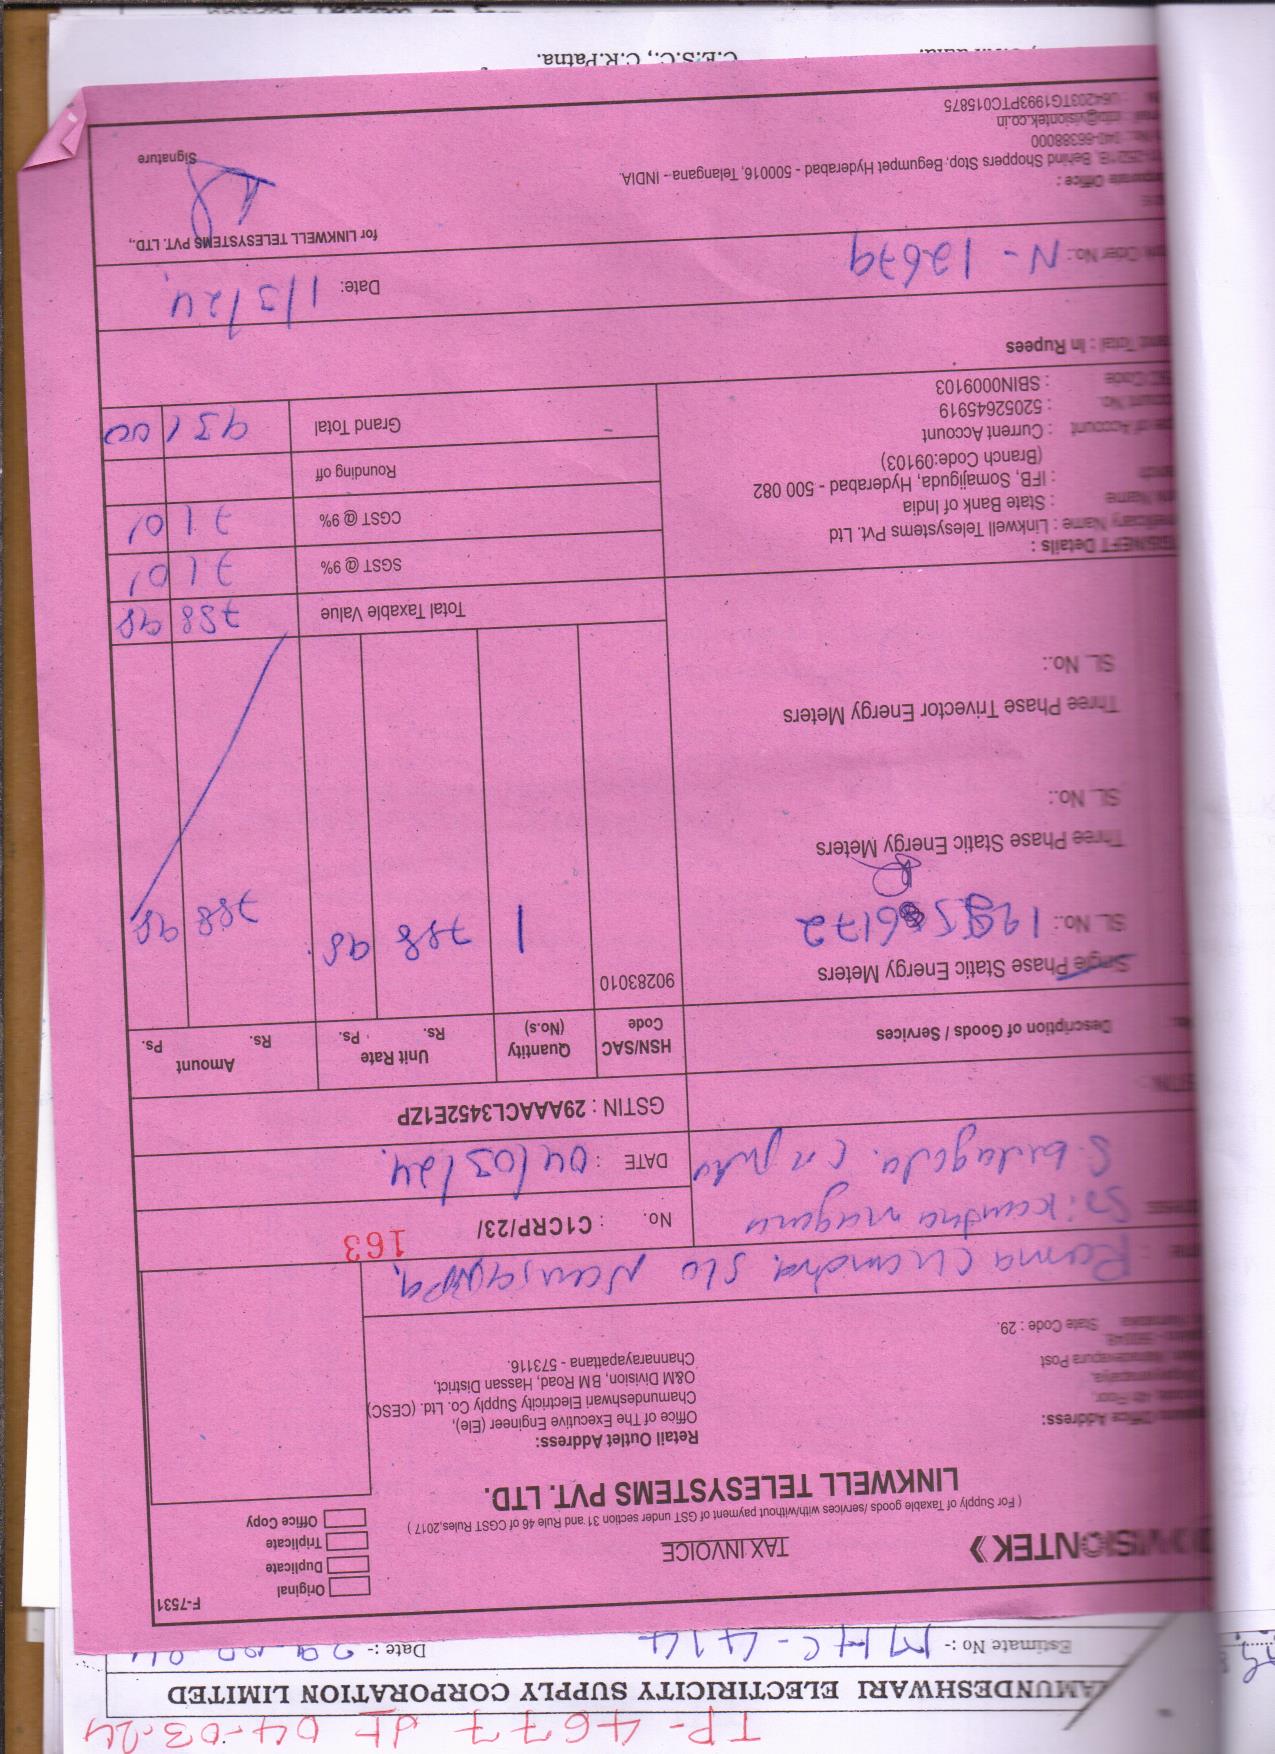 TP-4677 dt 04-03-24
AMUNDESHWARI ELECTIRICITY SUPPLY CORPORATION LIMITED
Estimate No :- MHC-414 Date :-
F-7531
Original
Duplicate
Triplicate
Office Copy
VISIONTEK
TAX INVOICE
( For Supply of Taxable goods /services with/without payment of GST under section 31 and Rule 46 of CGST Rules,2017 )
LINKWELL TELESYSTEMS PVT. LTD.
Office Address:
Retail Outlet Address:
Office of The Executive Engineer (Ele),
Chamundeshwari Electricity Supply Co. Ltd. (CESC)
O&M Division, BM Road, Hassan District,
Channarayapattana - 573116.
Post
State Code : 29.
Rama Chandra S/o
No. : C1CRP/23/ 163
DATE : 04/03/24.
GSTIN : 29AAACL3452E1ZP
Description of Goods / Services
HSN/SAC Code
Quantity (No.s)
Unit Rate Rs. Ps.
Amount Rs. Ps.
Single Phase Static Energy Meters 90283010
SL. No.: 6172 1 788 98 788 98
Three Phase Static Energy Meters
SL. No.:
Three Phase Trivector Energy Meters
SL. No.:
Total Taxable Value 788 98
SGST @ 9% 71 01
CGST @ 9% 71 01
Rounding off
Grand Total 931 00
NEFT Details :
Name : Linkwell Telesystems Pvt. Ltd
Name : State Bank of India
: IFB, Somajiguda, Hyderabad - 500 082
(Branch Code:09103)
of Account : Current Account
No. : 52052645919
Code : SBIN0009103
Total : In Rupees
Order No.: N-12679 Date: 1/3/24
for LINKWELL TELESYSTEMS PVT. LTD.,
Office :
Behind Shoppers Stop, Begumpet Hyderabad - 500016, Telangana - INDIA.
: 040-66388000
: info@visiontek.co.in
: U64203TG1993PTC015875
Signature
C.E.S.C., C.R.Patna.